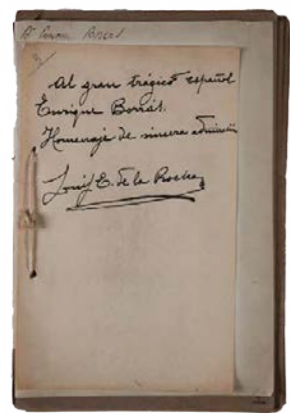 Borrás
Al gran trágico español
Enrique Borrás.
Homenaje de sincera admiración
Louis E. de la Rocha